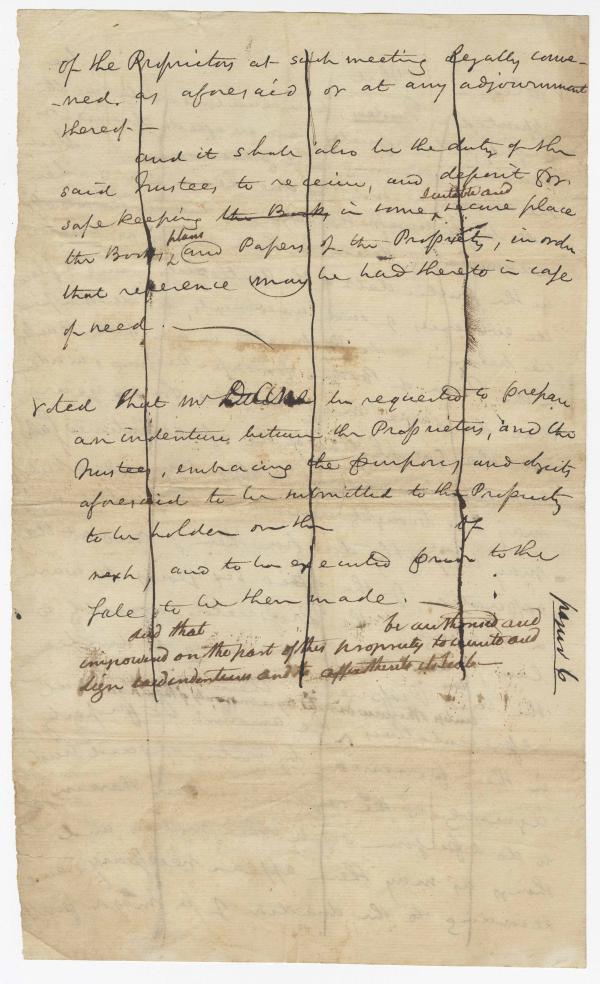 of the Proprietors at such meeting legally conve-
-ned. as aforesaid, or at any adjournment
thereof—
and it shall also be the duty of the
said Trustees to receive, and deposit for
suitable and
safe keeping the Books in some secure place
plans
the Books, and Papers of the Propriety, in order
that reference may be had thereto in case
of need.
Voted that Mr Deane be requested to prepare
an indenture, between the Proprietors, and the
Trustees, embracing the purposes and objects
aforesaid to be submitted to the Propriety
to be holden on the of
next, and to be executed prior to the
sale to be then made.
and that be authorised and
impowered on the part of this propriety to execute and
sign said indentures and to affix their seal
paper 6